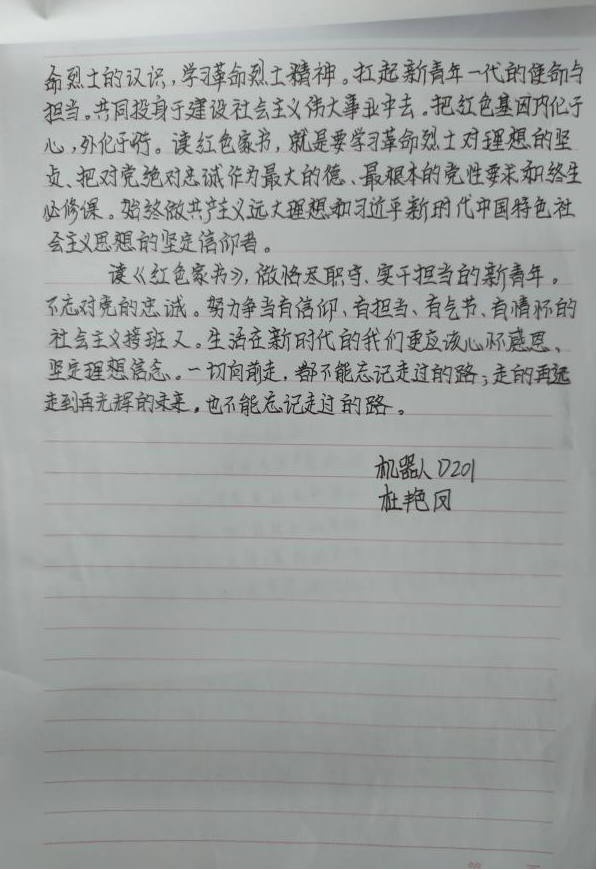 命烈士的认识，学习革命烈士精神。扛起新青年一代的使命与
担当。共同投身于建设社会主义伟大事业中去。把红色基因内化于
心，外化于行。读红色家书，就是要学习革命烈士对理想的坚
贞、把对党绝对忠诚作为最大的德、最根本的党性要求和终生
必修课。始终做共产主义远大理想和习近平新时代中国特色社
会主义思想的坚定信仰者。
读《红色家书》，做恪尽职守、实干担当的新青年。
不忘对党的忠诚。努力争当有信仰、有担当、有气节、有情怀的
社会主义接班人。生活在新时代的我们更应该心怀感恩、
坚定理想信念。一切向前走，都不能忘记走过的路；走的再远
走到再光辉的未来，也不能忘记走过的路。
机器人D201
杜艳冈
第 页